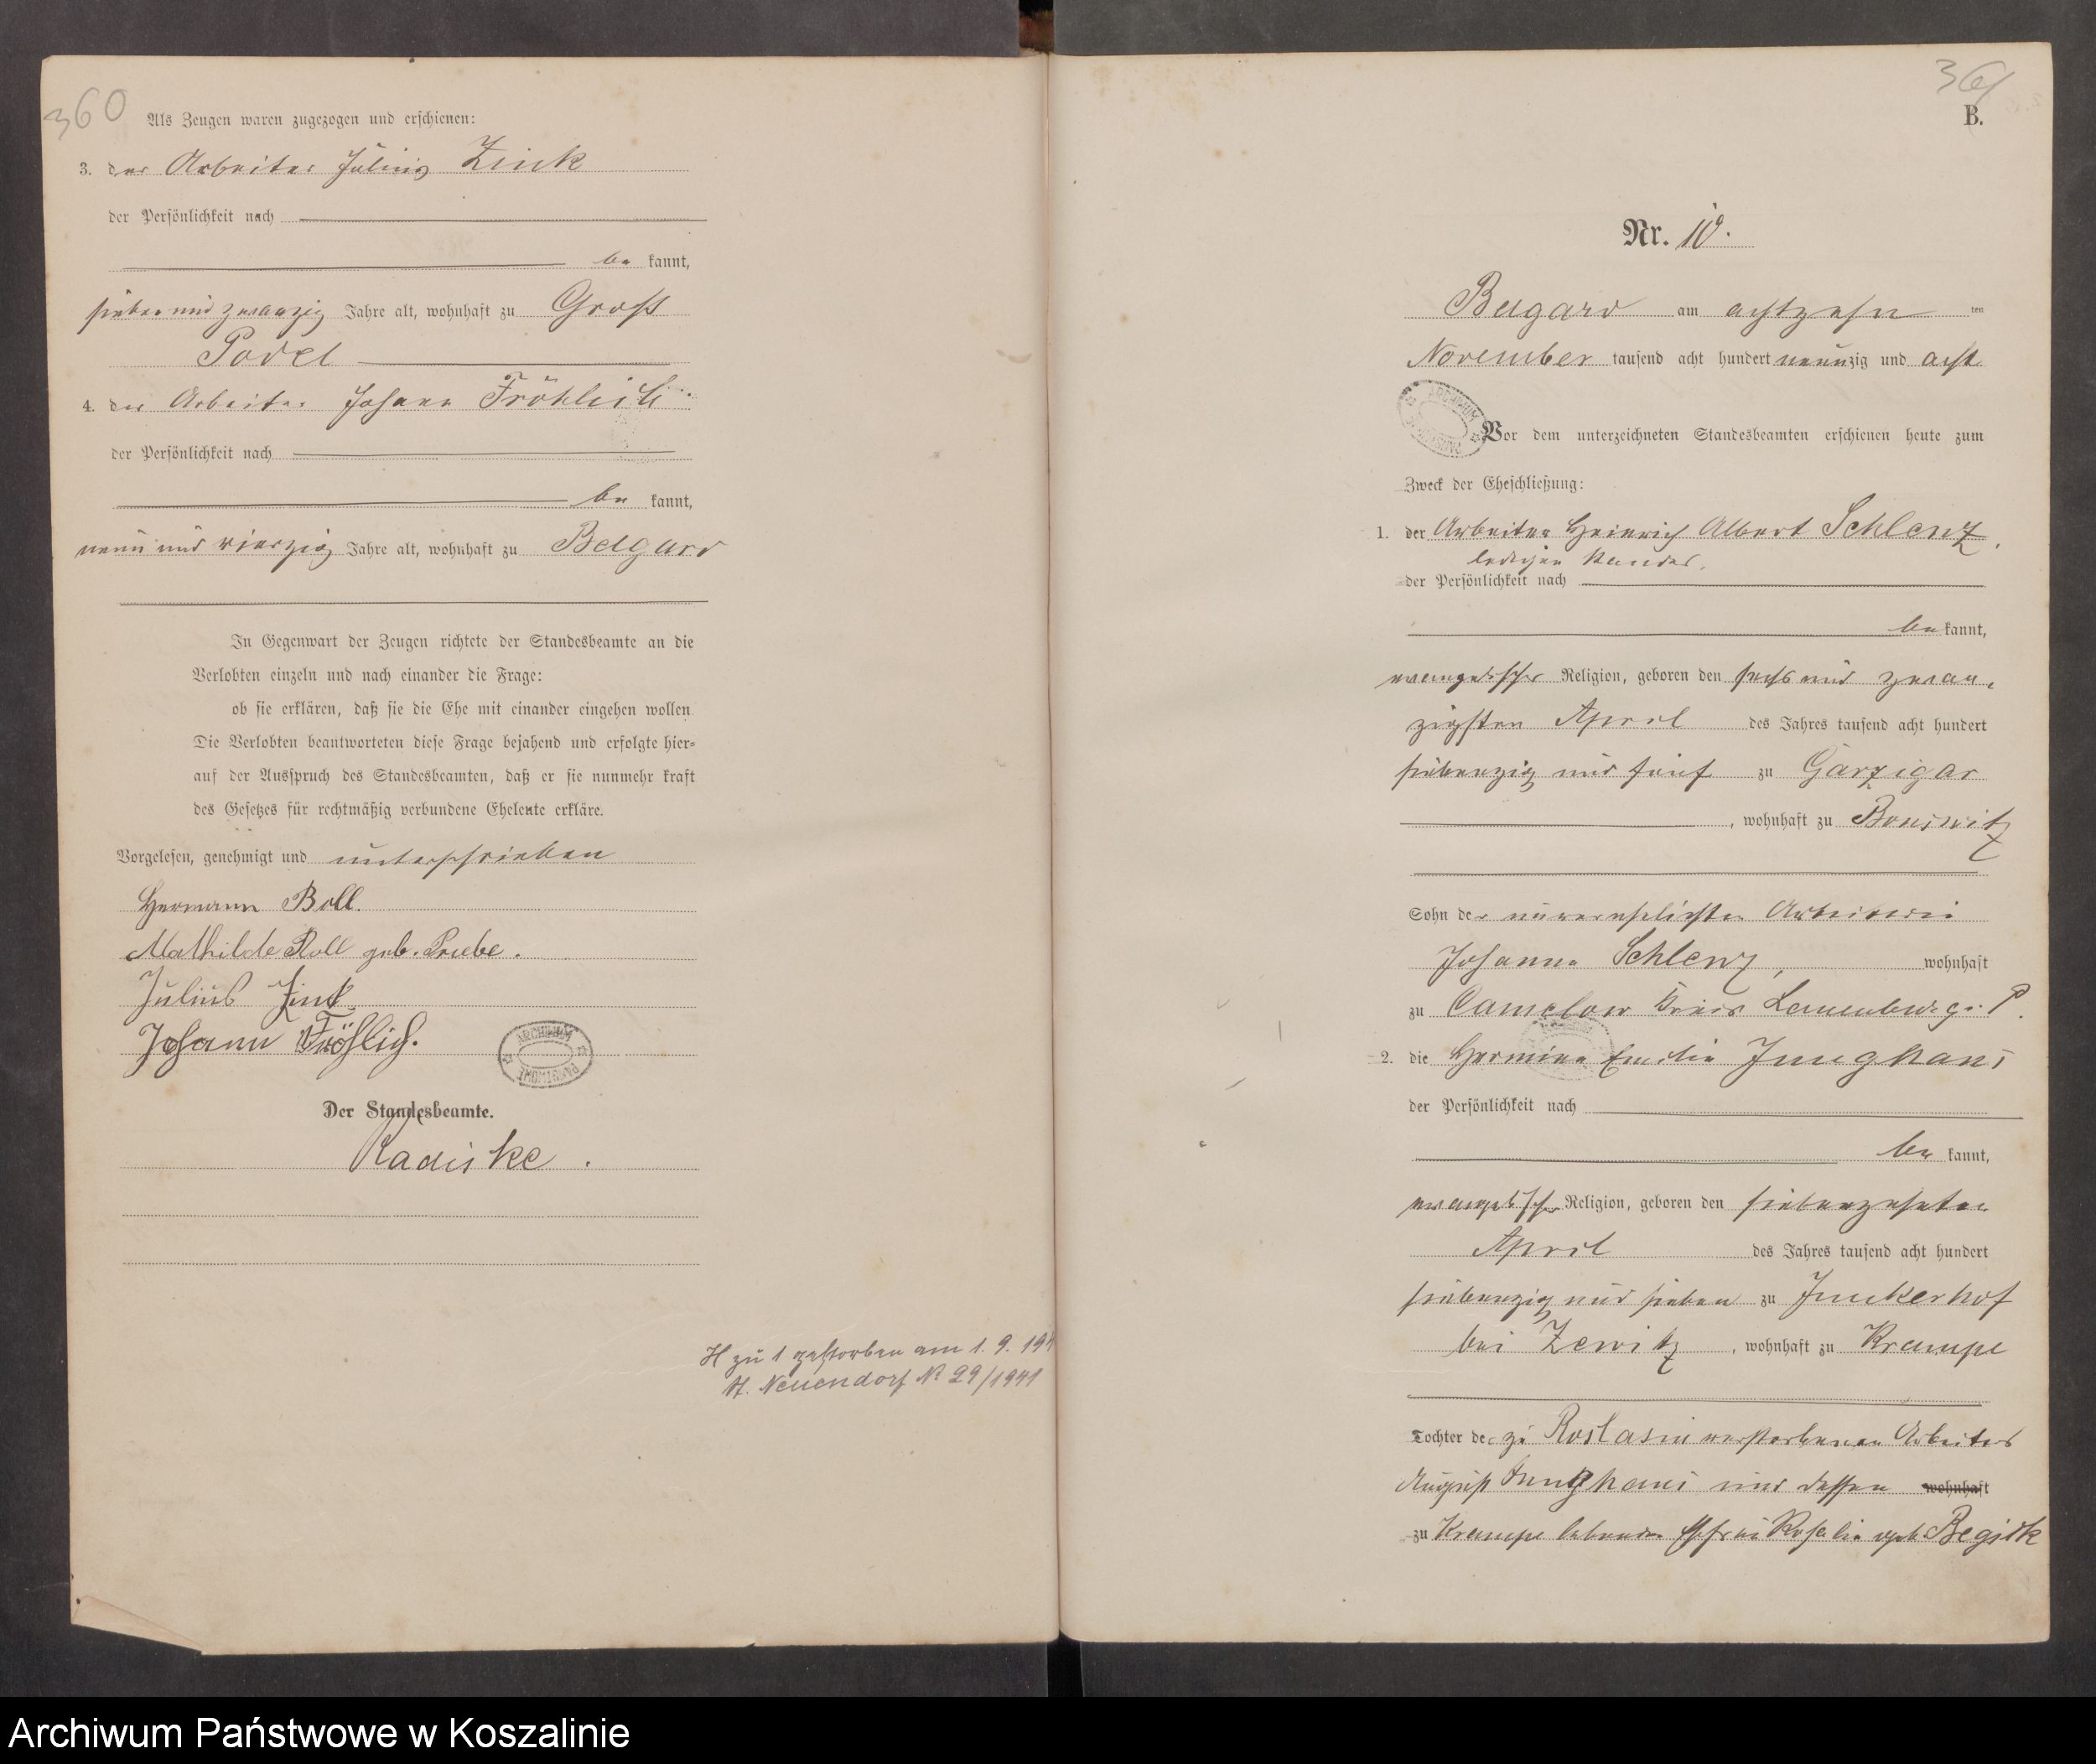 360
Als Zeugen waren zugezogen und erschienen:
3. der Arbeiter Julius Zink
der Persönlichkeit nach
be kannt,
sieben und zwanzig Jahre alt, wohnhaft zu Groß
Podel
4. der Arbeiter Johann Fröhlich
der Persönlichkeit nach
be kannt,
neun und vierzig Jahre alt, wohnhaft zu Belgard
In Gegenwart der Zeugen richtete der Standesbeamte an die
Verlobten einzeln und nach einander die Frage:
ob sie erklären, daß sie die Ehe mit einander eingehen wollen
Die Verlobten beantworteten diese Frage bejahend und erfolgte hier=
auf der Ausspruch des Standesbeamten, daß er sie nunmehr kraft
des Gesetzes für rechtmäßig verbundene Eheleute erkläre.
Vorgelesen, genehmigt und unterschrieben
Hermann Boll.
Mathilde Boll geb.
Julius Zink
Johann Fröhlich.
ARCHIWUM PAŃSTWOWE
Der Standesbeamte.
Radiske.
H zu 1 gestorben am 1. 9. 194
St. Neuendorf № 29/1941
361
B.
Nr. 10.
Belgard am achtzehn ten
November tausend acht hundert neunzig und acht
ARCHIWUM
Vor dem unterzeichneten Standesbeamten erschienen heute zum
Zweck der Eheschließung:
1. der Arbeiter Heinrich Albert Schlenz,
ledigen Standes.
der Persönlichkeit nach
be kannt,
evangelischer Religion, geboren den sechs und zwan-
zigsten April des Jahres tausend acht hundert
siebenzig und fünf zu Garzigar
, wohnhaft zu Bonswitz
Sohn der unverehelichten Arbeiterin
Johanna Schlenz, wohnhaft
zu Camelow Kreis Lauenburg i. P.
2. die Hermine Emilie Junghans
der Persönlichkeit nach
be kannt,
evangelischer Religion, geboren den siebenzehnten
April des Jahres tausend acht hundert
siebenzig und sieben zu Junkerhof
bei Zewitz, wohnhaft zu Krampe
Tochter des zu Roslasin verstorbenen Arbeiters
August Junghans und dessen wohnhaft
zu Krampe lebenden Ehefrau Rosalie geb.
Archiwum Państwowe w Koszalinie